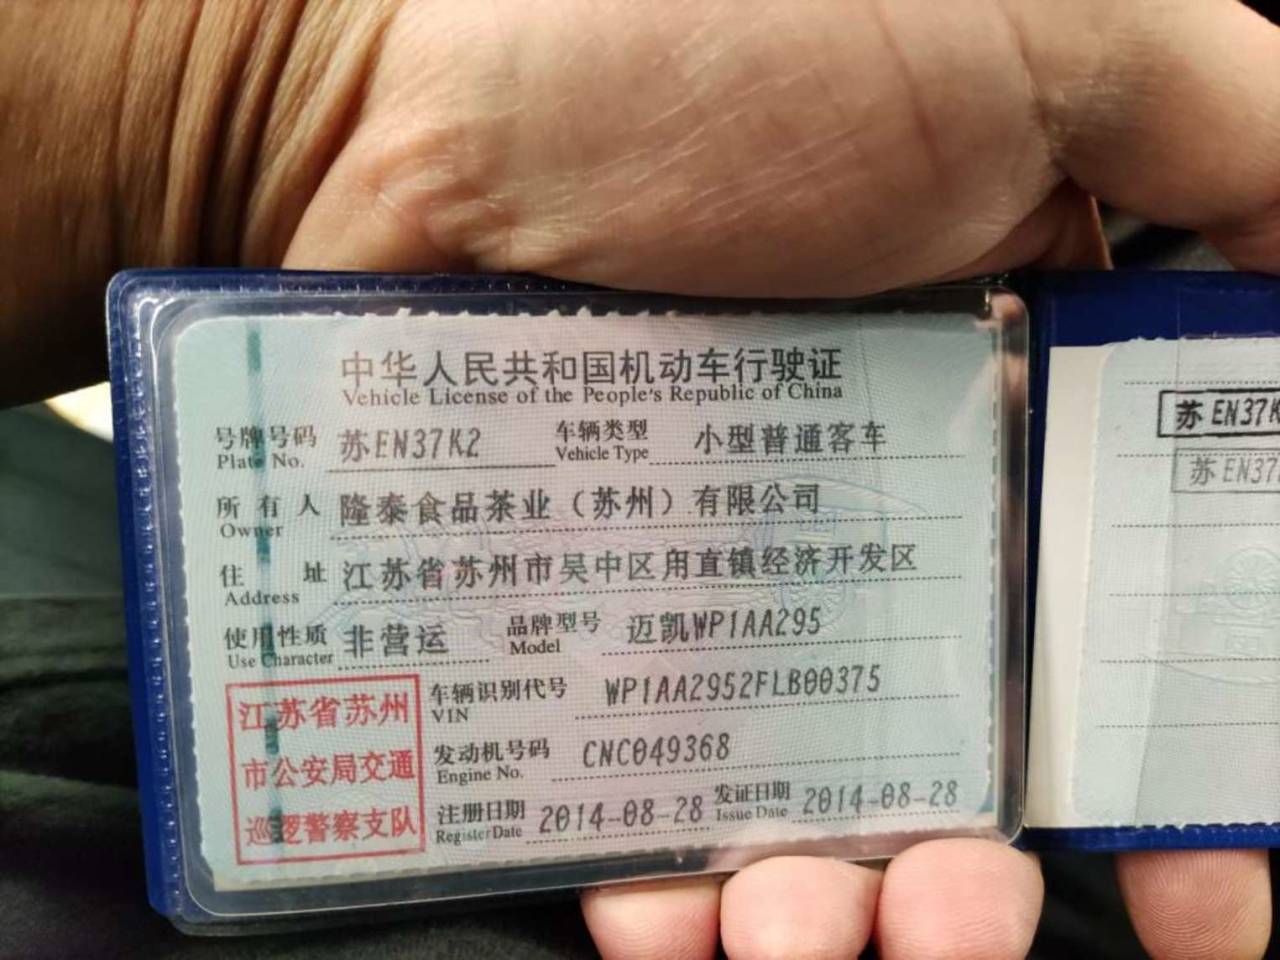 中华人民共和国机动车行驶证
Vehicle License of the People's Republic of China
号牌号码 苏EN37K2 车辆类型 小型普通客车
Plate No. Vehicle Type
所有人 隆泰食品茶业（苏州）有限公司
Owner
住址 江苏省苏州市吴中区甪直镇经济开发区
Address
使用性质 非营运 品牌型号 迈凯WP1AA295
Use Character Model
车辆识别代号 WP1AA2952FLB00375
VIN
发动机号码 CNC049368
Engine No.
注册日期 2014-08-28 发证日期 2014-08-28
Register Date Issue Date
江苏省苏州
市公安局交通
巡逻警察支队
苏EN37K
苏EN37